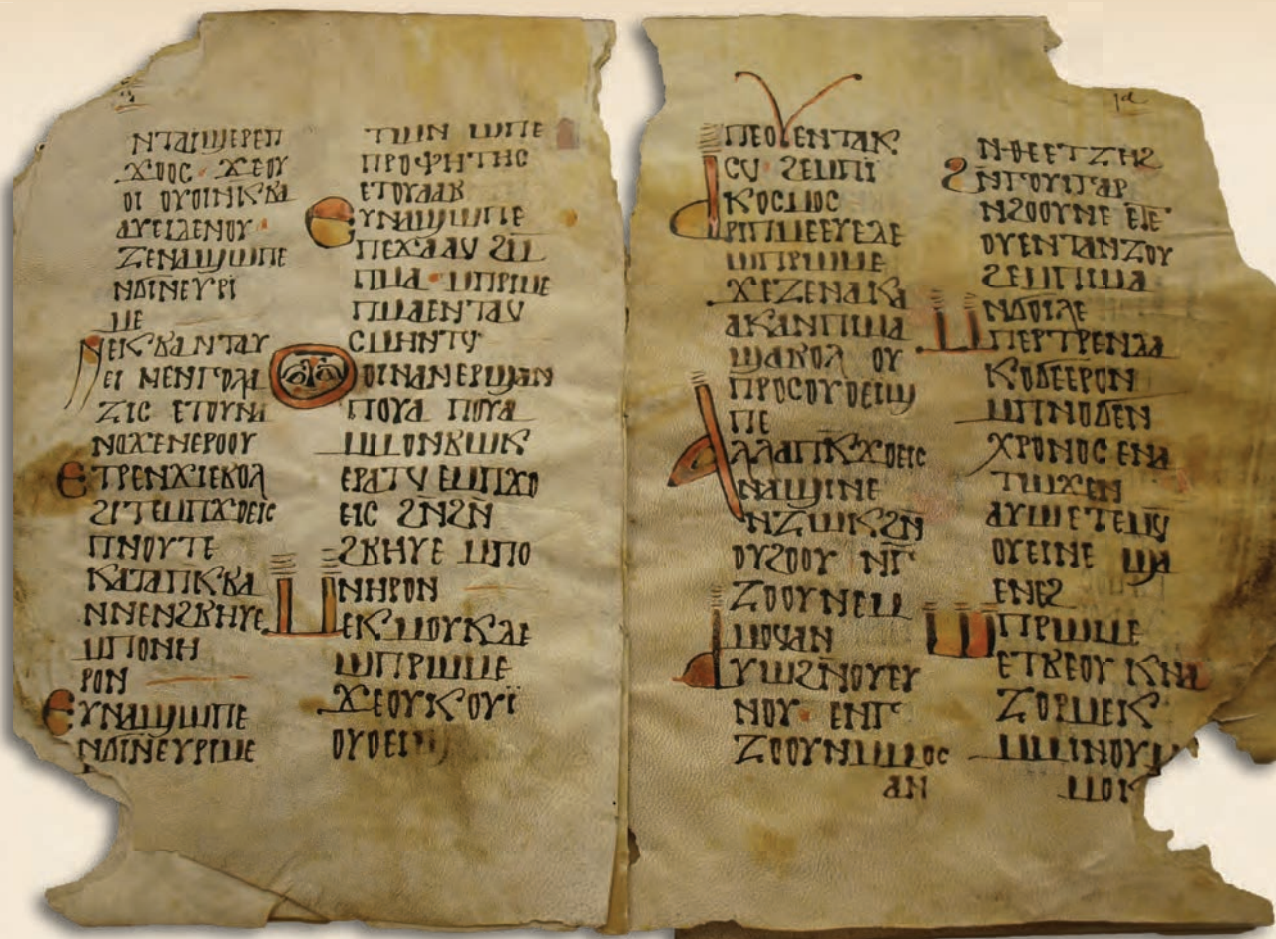 ⲛⲧⲁⲓϣⲉⲣⲉⲡ
ϫⲟⲟⲥ · ϫⲉⲟⲩ
ⲟⲓ ⲟⲩⲟⲓⲛⲕⲃⲁ
ⲁⲩⲉⲓⲗⲉⲛⲟⲩ ·
ⲍⲉⲛⲁϣⲱⲡⲉ
ⲛϭⲓⲛⲉⲩⲣⲓ
ⲙⲉ
ⲛⲉⲓⲕⲃⲁⲛⲧⲁⲩ
ⲉⲓ ⲛⲉⲛⲅⲟⲗⲁ
ⲍⲓⲥ ⲉⲧⲟⲩⲛⲁ
ⲛⲟϫⲉⲛⲉⲣⲟⲟⲩ
ⲉⲧⲣⲉⲛϫⲓⲉⲃⲟⲗ
ϩⲓⲧⲉⲙⲡϫⲟⲉⲓⲥ
ⲡⲛⲟⲩⲧⲉ
ⲕⲁⲧⲁⲡⲕⲃⲁ
ⲛⲛⲉⲛϩⲃⲏⲩⲉ
ⲙⲡⲟⲛⲏ
ⲣⲟⲛ
ⲉⲩⲛⲁϣⲱⲡⲉ
ⲛϭⲓⲛⲉⲩⲣⲓⲙⲉ
ⲧⲱⲛ ⲙⲡⲉ
ⲡⲣⲟⲫⲏⲧⲏⲥ
ⲉⲧⲟⲩⲁⲁⲃ
ⲉϥⲛⲁϣⲱⲡⲉ
ⲡⲉϫⲁⲁϥ ϩⲙ
ⲡⲙⲁ · ⲙⲡⲣⲓⲙⲉ
ⲡⲙⲁⲉⲛⲧⲁϥ
ⲥⲙⲛⲧϥ
ⲟⲓⲛⲁⲛⲉⲣϣⲁⲛ
ⲡⲟⲩⲁ ⲡⲟⲩⲁ
ⲙⲙⲟⲛⲃⲱⲕ
ⲉⲣⲁⲧϥ ⲉⲙⲡϫⲟ
ⲉⲓⲥ ϩⲛ̄ϩⲛ̄
ϩⲃⲏⲩⲉ ⲙⲡⲟ
ⲛⲏⲣⲟⲛ
ⲙⲉⲕⲙⲟⲩⲕⲇⲉ
ⲙⲡⲣⲱⲙⲉ
ϫⲉⲟⲩⲕⲟⲩⲓ̈
ⲟⲩⲟⲉⲓϣ
ⲡⲉⲟⲩⲉⲛⲧⲁⲕ
ⲥϥ · ϩⲉⲙⲡⲓ̈
ⲕⲟⲥⲙⲟⲥ
ⲁⲣⲓⲡⲙⲉⲉⲩⲉⲇⲉ
ⲙⲡⲣⲱⲙⲉ
ϫⲉⲍⲉⲛⲁⲕⲁ
ⲁⲕⲁⲛⲡⲓⲙⲁ
ϣⲁⲃⲟⲗ ⲟⲩ
ⲡⲣⲟⲥⲟⲩⲟⲉⲓϣ
ⲡⲉ
ⲁⲗⲗⲁⲡⲕϫⲟⲉⲓⲥ
ⲛⲁϣⲓⲛⲉ
ⲛⲍⲱⲕϩⲛ̄
ⲟⲩϩⲟⲟⲩ ⲛⲅ
ⲍⲟⲟⲩⲛⲉⲙ
ⲙⲟϥⲁⲛ
ⲁⲩⲱϩⲛ̄ⲟⲩⲉⲩ
ⲛⲟⲩ · ⲉⲛⲅ
ⲍⲟⲟⲩⲛⲙⲙⲟⲥ
ⲁⲛ
ⲛⲑⲉⲉⲧⲍⲏϩ
ϩⲛⲅⲟⲩⲓⲅⲁⲣ
ⲛϩⲟⲟⲩⲛⲉ ⲉⲧⲉ
ⲟⲩⲉⲛⲧⲁⲛⲍⲟⲩ
ϩⲉⲙⲡⲓⲙⲁ
ⲛϭⲟⲓⲗⲉ
ⲙⲡⲉⲣⲧⲣⲉⲛⲗⲁ
ⲕⲟϭⲉⲉⲣⲟⲛ
ⲙⲡⲛⲟϭⲉⲛ
ⲭⲣⲟⲛⲟⲥ ⲉⲛⲁ
ⲧⲱϫⲉⲛ
ⲁⲩⲱⲉⲧⲉⲙϥ
ⲟⲩⲉⲓⲛⲉ ϣⲁ
ⲉⲛⲉϩ
ⲱⲡⲣⲱⲙⲉ
ⲉⲧⲃⲉⲟⲩ ⲕⲛⲁ
ⲍⲟⲣⲙⲉⲕ
ⲙⲙⲓⲛⲟⲩ
ⲙⲟⲕ